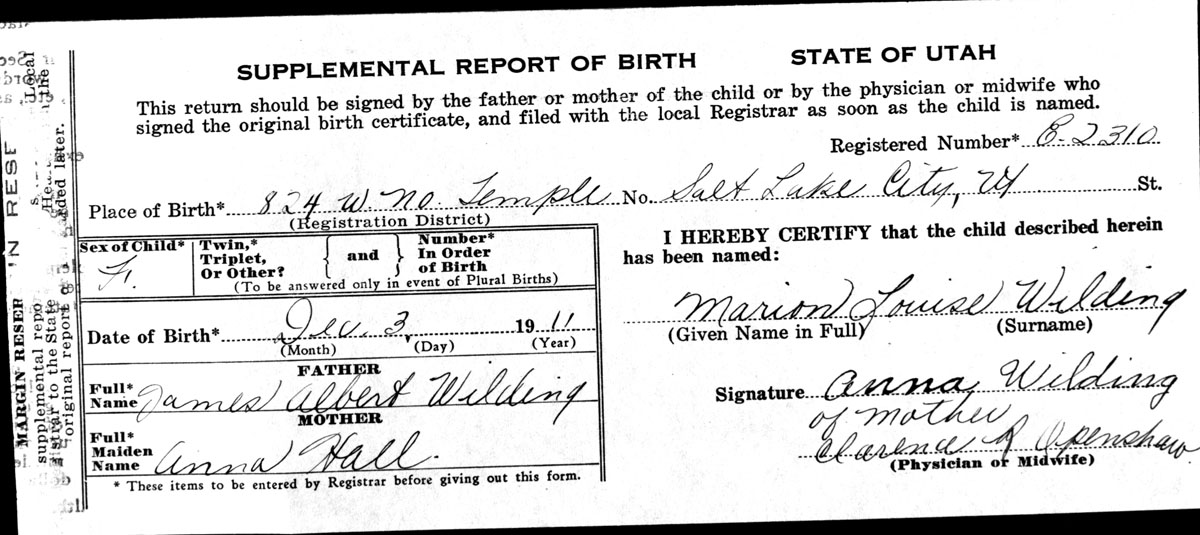 SUPPLEMENTAL REPORT OF BIRTH STATE OF UTAH
This return should be signed by the father or mother of the child or by the physician or midwife who
signed the original birth certificate, and filed with the local Registrar as soon as the child is named.
Registered Number* 2310
Place of Birth* 824 W. No. Temple No. Salt Lake City, St.
(Registration District)
Sex of Child* F.
Twin,*
Triplet,
Or Other?
and
Number*
In Order
of Birth
(To be answered only in event of Plural Births)
Date of Birth* Dec. 3, 1911
(Month) (Day) (Year)
FATHER
Full*
Name James Albert Wilding
MOTHER
Full*
Maiden
Name Anna Hall.
* These items to be entered by Registrar before giving out this form.
I HEREBY CERTIFY that the child described herein
has been named:
Marion Louise Wilding
(Given Name in Full) (Surname)
Signature Anna Wilding
of Mother
Clarence R Openshaw
(Physician or Midwife)
MARGIN RESER
supplemental repo
strar to the State
original report
added later.
Local
the
N RESE